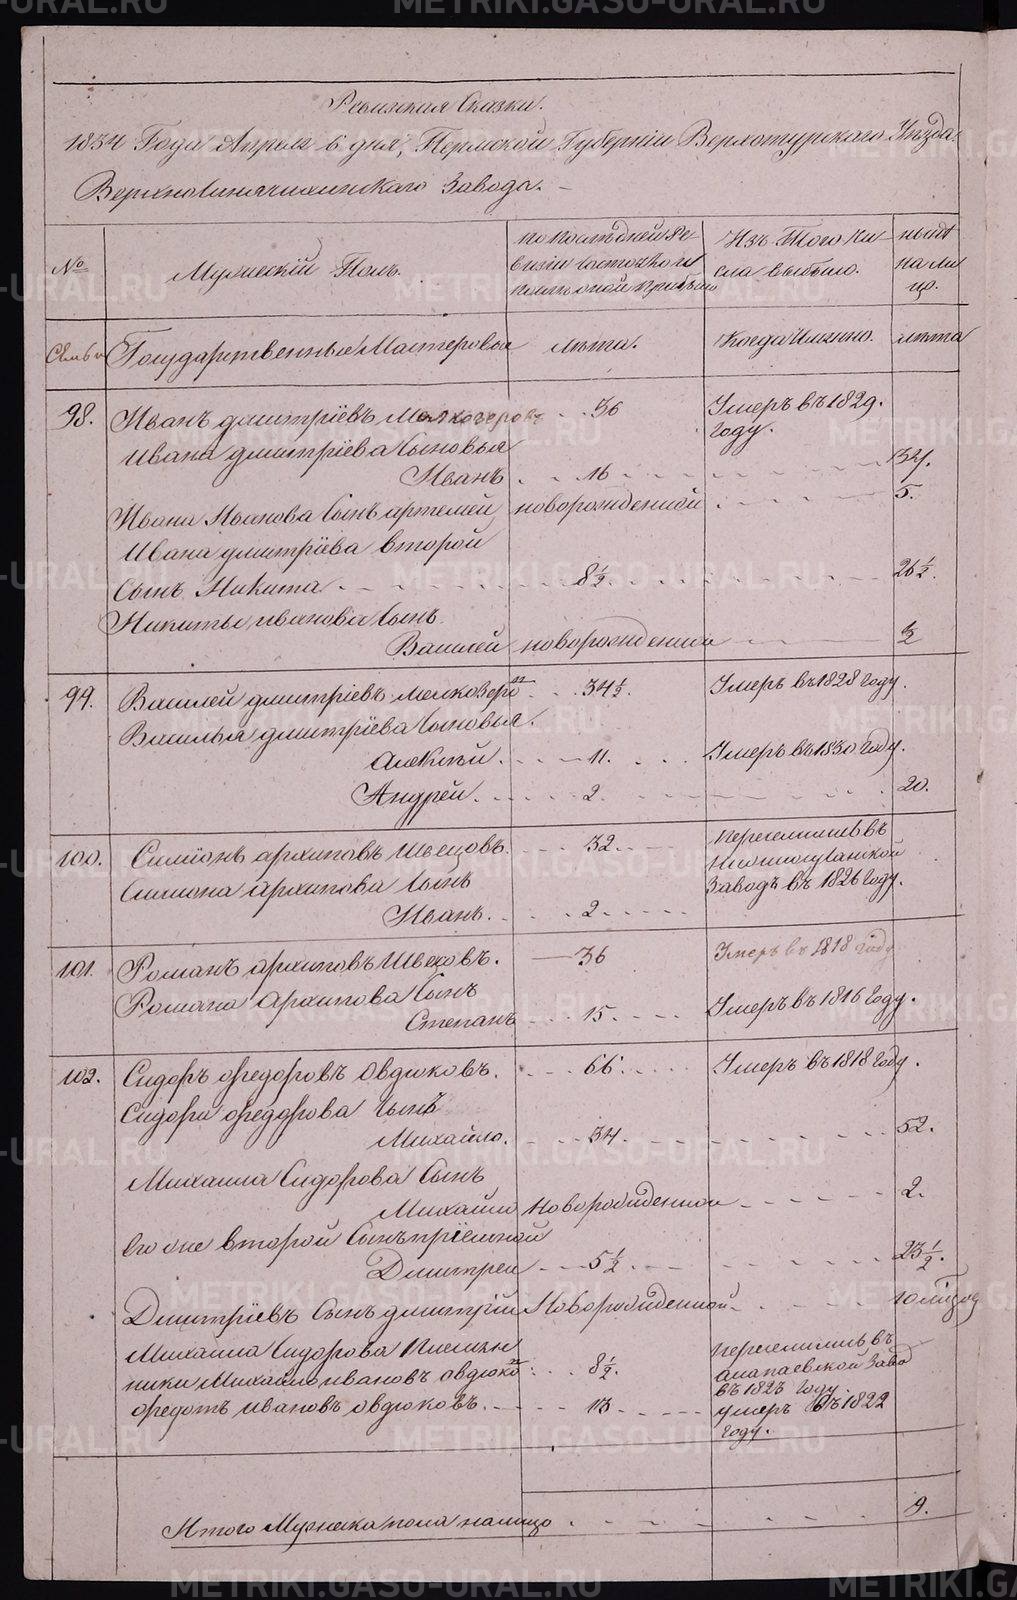 Ревижская Сказка.
1834 Года Апреля 6 дня, Пермской Губернiи Верхотурскаго Уѣзда.
Верхнесинячихинскаго Завода. –
№ Мужескiй Полъ. по послѣдней Ревизiи состояло и послѣ оной прибыло Изъ Того числа выбыло. нынѣ на лицо.
Семьи Государственные Мастеровыя лѣта. Когда Имянно. лѣта
98. Иванъ дмитрiевъ Мелкозеровъ 36 Умеръ въ 1829. году.
Ивана дмитрiева Сыновья
Иванъ 16 34.
Ивана Иванова Сынъ артемей новорожденной 5.
Ивана дмитрiева второй
Сынъ Никита 8½ 26½.
Никиты иванова Сынъ
Василей новорожденной 3
99. Василей дмитрiевъ мелкозеровъ 34½. Умеръ въ 1828 году.
Василья дмитрiева Сыновья.
алексѣй. 11. Умеръ въ 1830 году.
Андрей. 2. 20.
100. Симiонъ архиповъ Швецовъ. 32. переселились въ
Симиона архипова Сынъ Нижнесусанской
Иванъ. 2 Заводъ въ 1826 году.
101. Романъ архиповъ Швецовъ. 36 Умеръ въ 1818 году
Романа архипова Сынъ
Степанъ 15. Умеръ въ 1816 году.
102. Сидоръ федоровъ Овдюковъ. 66. Умеръ въ 1818 году.
Сидора федорова Сынъ
Михайло. 34. 52.
Михаила Сидорова Сынъ
Михайло Новорожденной 2.
Его же второй Сынъ прiемной
Димитрей 5½ 23½.
Димитрiевъ Сынъ дмитрiй Новорожденной 10 мѣсяц
Михаила Сидорова Племянники Михайло ивановъ овдюковъ 8½. переселились въ алапаевской Завод въ 1823 году.
федотъ ивановъ овдюковъ. 13. умеръ въ 1822 году.
Итого Мужеска пола налицо 9.
METRIKI.GASO-URAL.RU